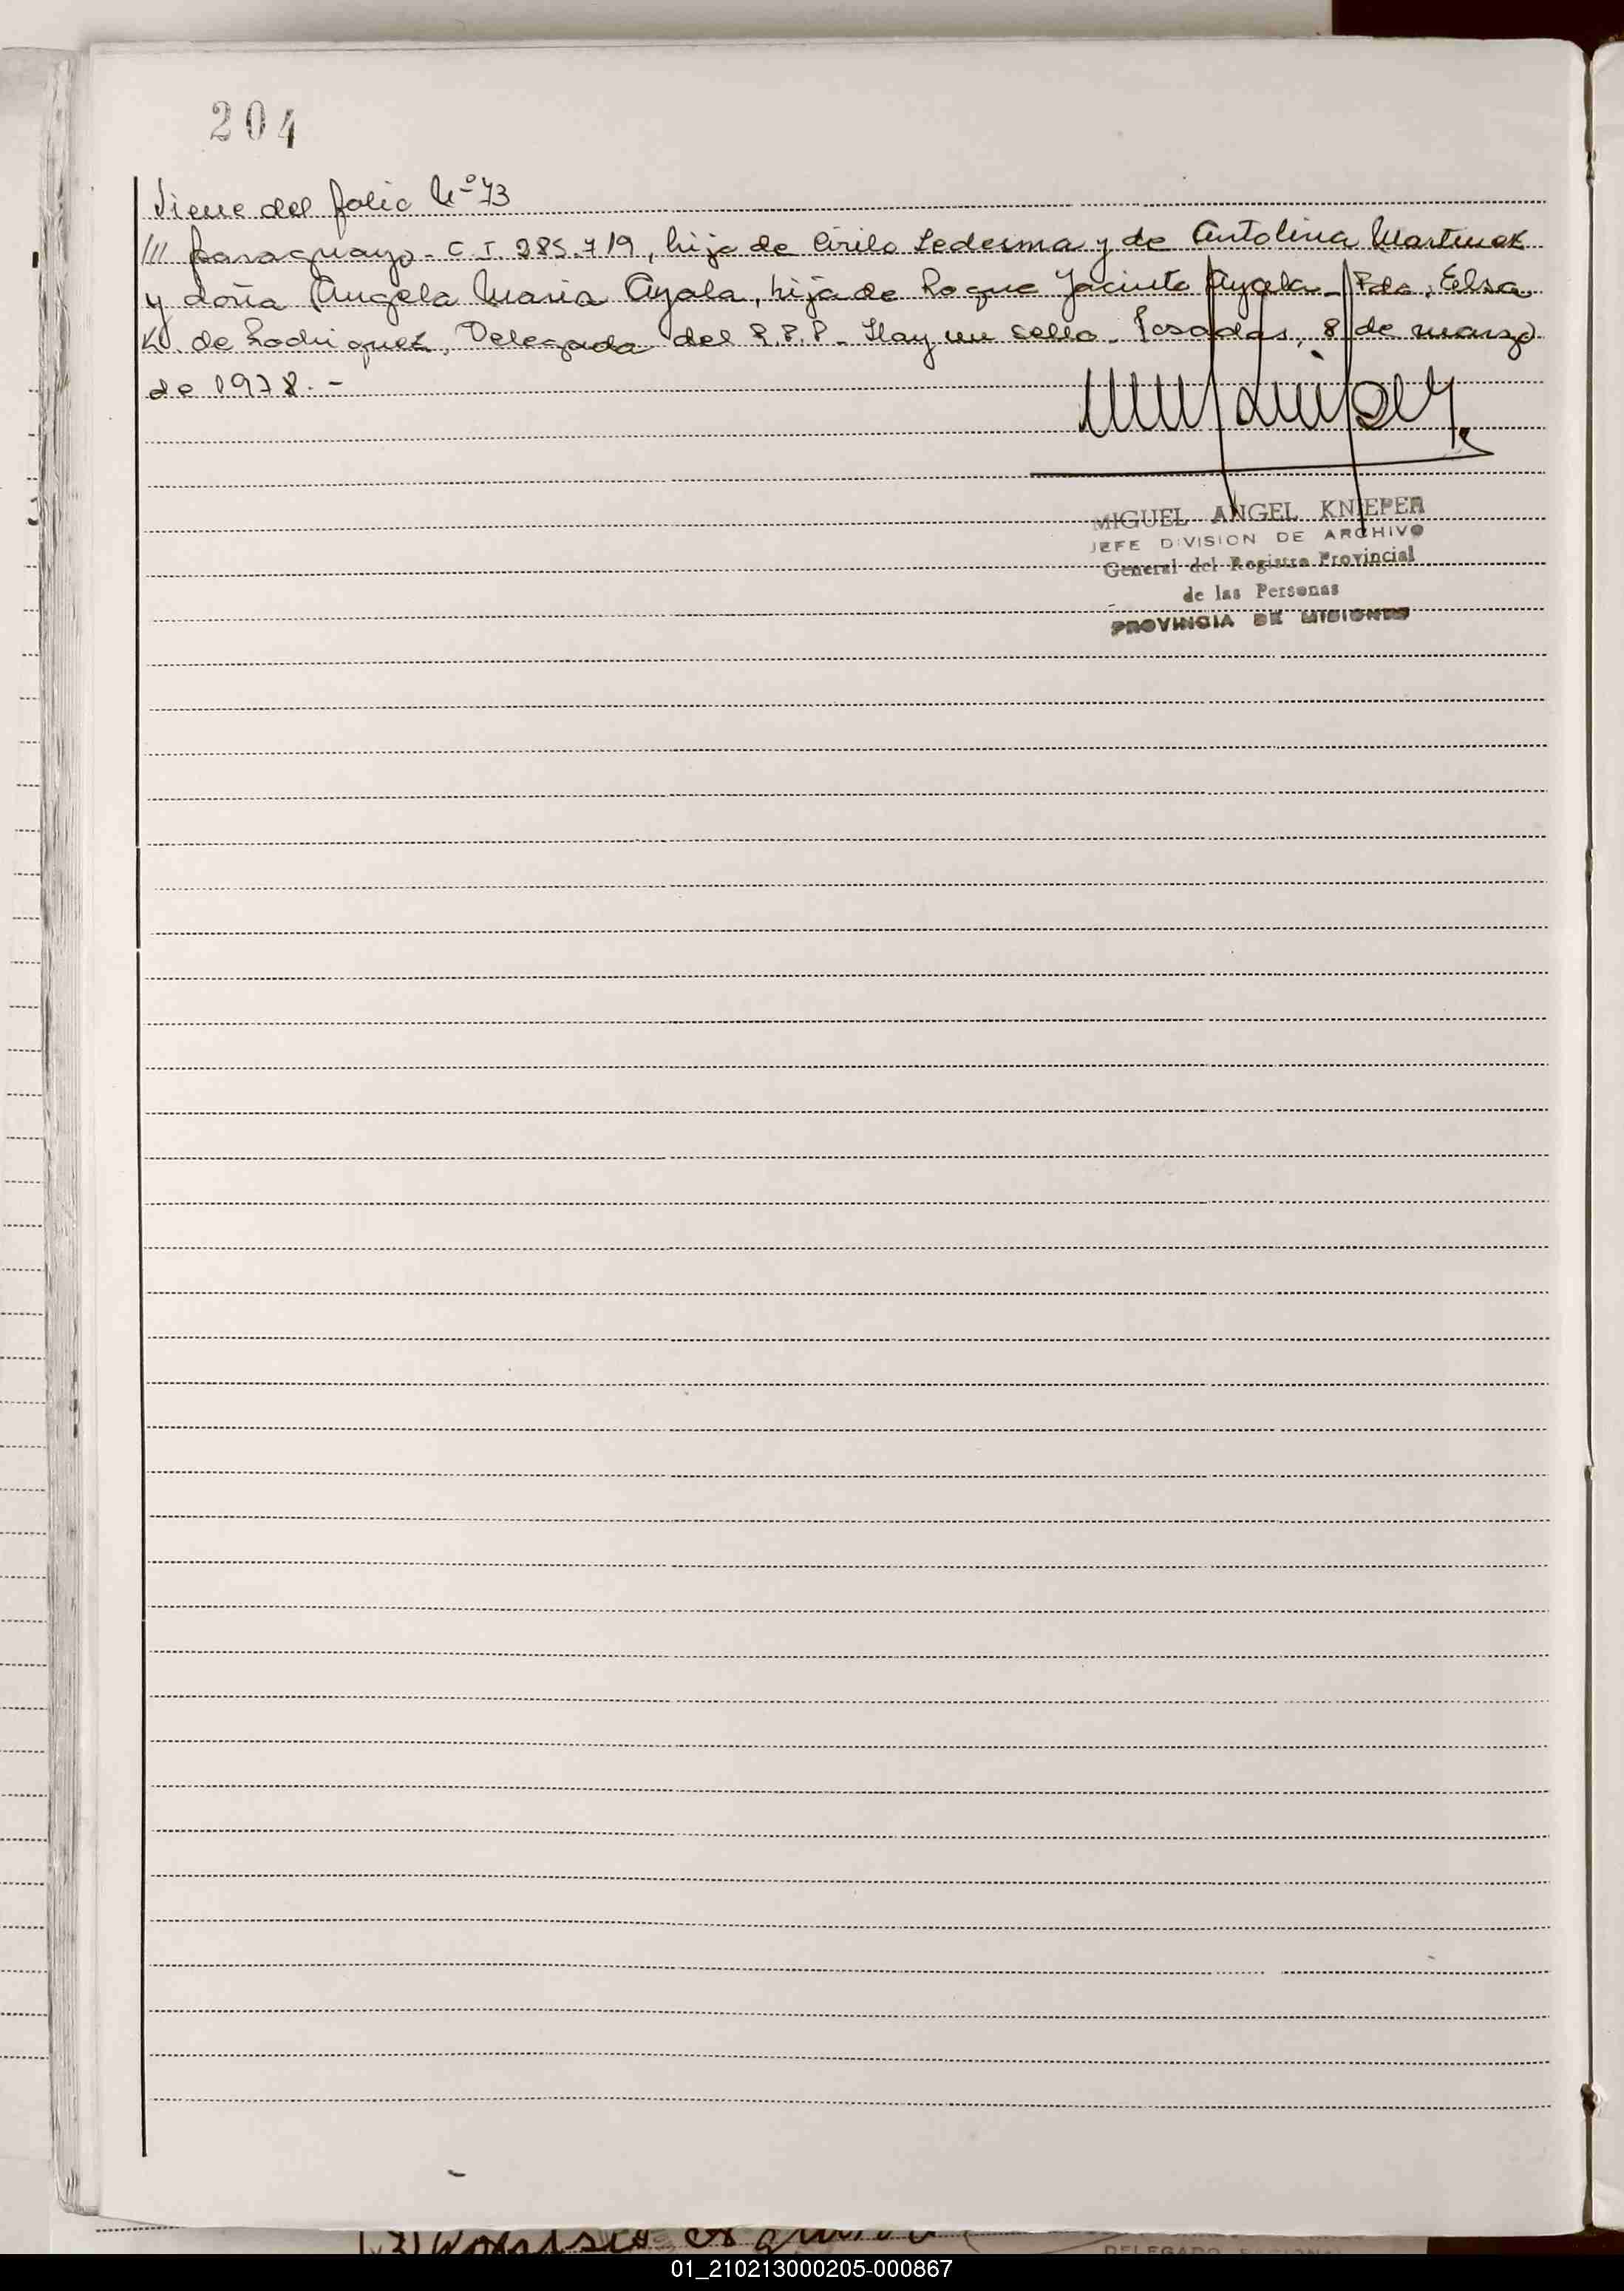 204
Viene del folio Nº 73
/// paraguayo - C.I. 285.719, hijo de Cirilo Ledesma y de Antolina Martinez
y doña Angela Maria Ayala, hija de Roque Jacinto Ayala - Fdo. Elsa
K. de Rodriguez, Delegada del R.P.P. - Hay un sello - Posadas, 8 de marzo
de 1978. -
MIGUEL ANGEL KNIEPER
JEFE DIVISION DE ARCHIVO
General del Registro Provincial
de las Personas
PROVINCIA DE MISIONES
DELEGADO
01_210213000205-000867